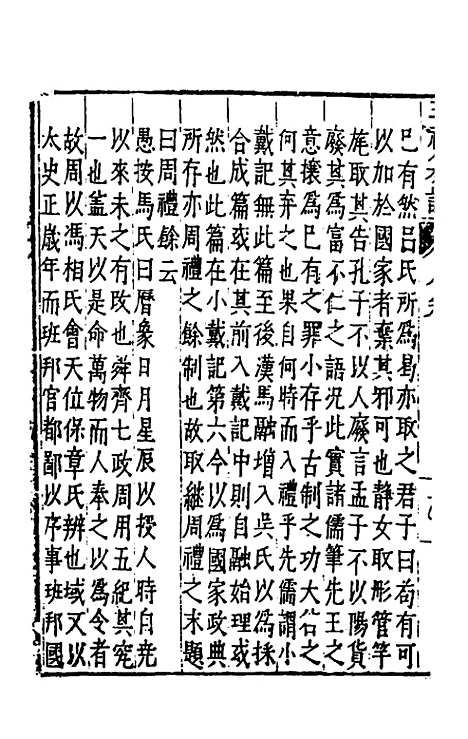 已有然吕氏所爲易亦取之君子曰苟有可
以加於國家者棄其邪可也静女取彤管竿
旄取其告孔子不以人廢言孟子不以陽貨
廢其爲富不仁之語况此實諸儒筆先王之
意攘爲已有之罪小存乎古制之功大谷之
何其弃之也果自何時而入禮乎先儒謂小
戴記無此篇至後漢馬融增入吳氏以爲採
合成篇或在其前入戴記中則自融始理或
然也此篇在小戴記第六今以爲國家政典
所存亦周禮之餘制也故取継周禮之末題
曰周禮餘云
愚按馬氏曰曆象日月星辰以授人時自尭
以來未之有改也舜齊七政周用五紀其究
一也盖天以是命萬物而人奉之以爲令者
故周以馮相氏會天位保章氏辨也域又以
太史正歳年而班邦官都鄙以序事班邦國